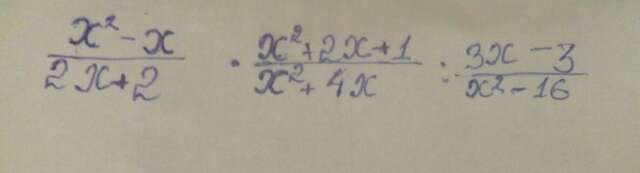 \frac{x^2-x}{2x+2} \cdot \frac{x^2+2x+1}{x^2+4x} : \frac{3x-3}{x^2-16}